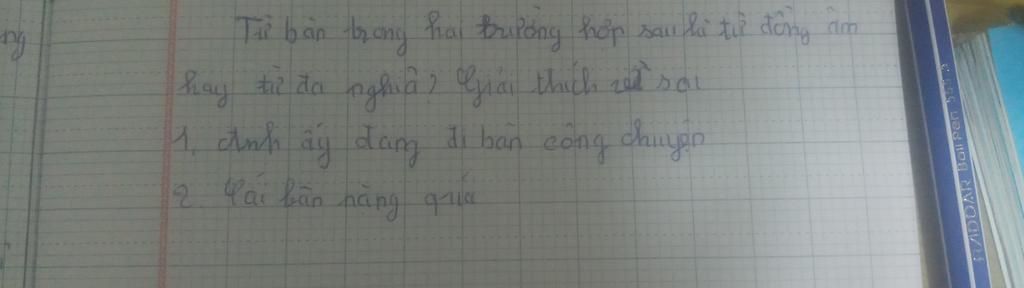 ng
Từ bàn trong hai trường hợp sau là từ đồng âm
hay từ đa nghĩa? Giải thích sơ
1. Anh ấy đang đi bàn công chuyện
2. Cái bàn nặng quá
HADOAR Ball Pen